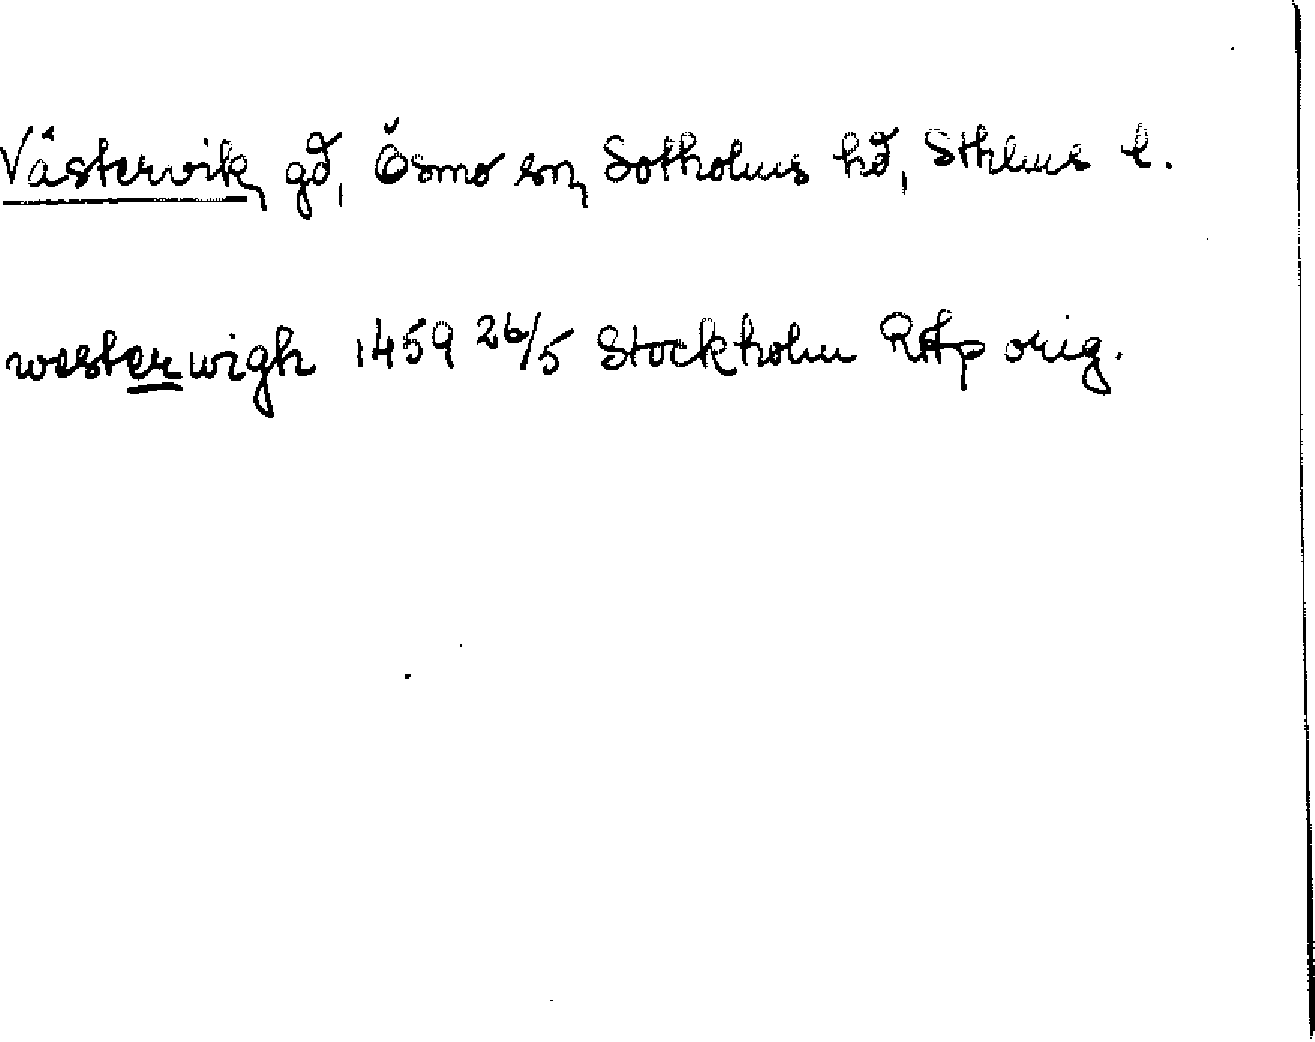 Västervik, gd, Ösmo sn, Sotholms hd, Sthlms l.
westerwigh 1459 26/5 Stockholm RAp orig.